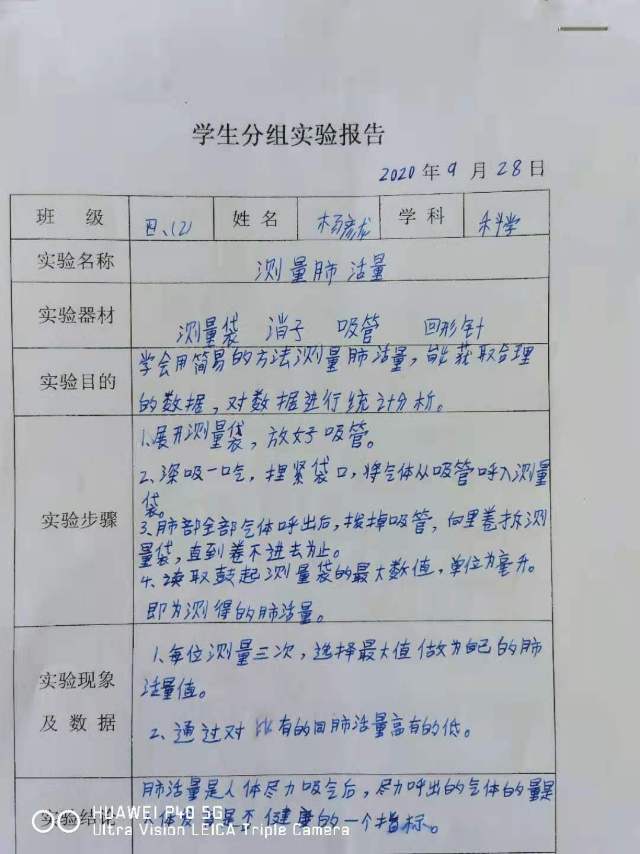 学生分组实验报告
2020年9月28日
班 级 四、(2) 姓 名 杨彦龙 学 科 科学
实验名称 测量肺活量
实验器材 测量袋 消子 吸管 回形针
实验目的 学会用简易的方法测量肺活量,能获取合理
的数据,对数据进行统计分析。
实验步骤
1、展开测量袋,放好吸管。
2、深吸一口气,捏紧袋口,将气体从吸管呼入测量
袋。
3、肺部全部气体呼出后,拔掉吸管,向里卷折测
量袋,直到卷不进去为止。
4、读取鼓起测量袋的最大数值,单位为毫升。
即为测得的肺活量。
实验现象
及 数 据
1、每位测量三次,选择最大值做为自己的肺
活量值。
2、通过对比有的同肺活量高有的低。
肺活量是人体尽力吸气后,尽力呼出的气体的量是
人体发育是否健康的一个指标。
HUAWEI P40 5G
Ultra Vision LEICA Triple Camera